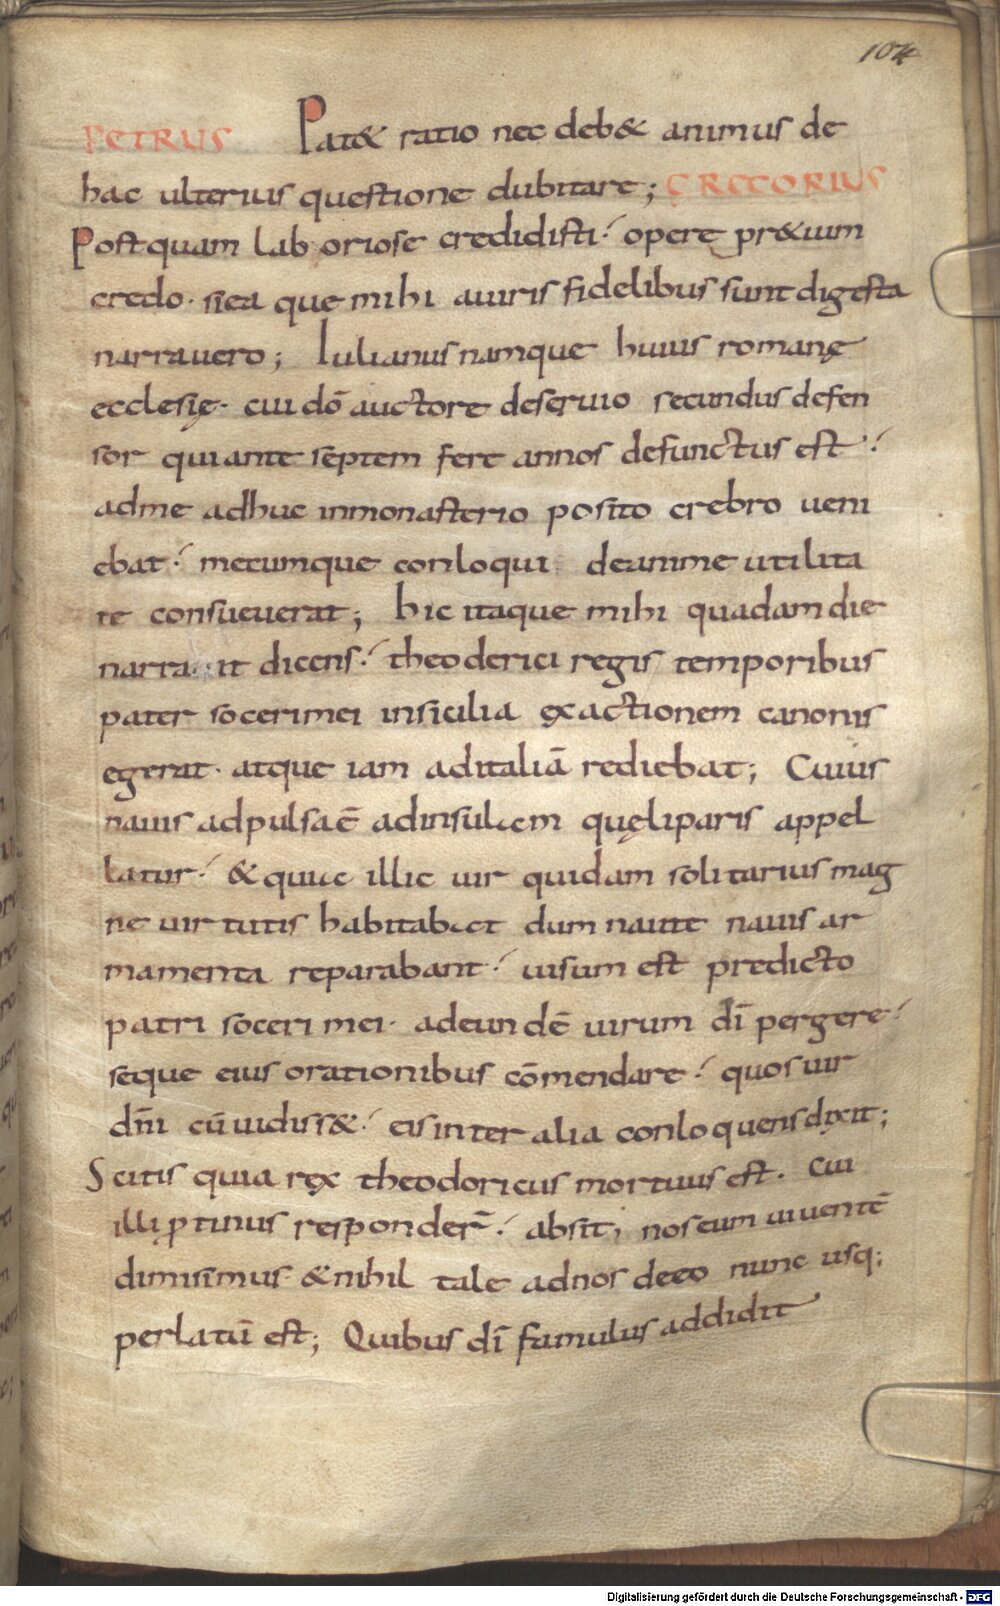 104
PETRUS Pat& ratio nec deb& animus de
hac ulterius questione dubitare; GREGORIUS
Postquam lab oriose credidisti· operę pr&ium
credo· si ea que mihi a uiris fidelibus sunt digesta
narrauero; Iulianus namque huius romanę
ecclesię· cui dō auctore deseruio secundus defen
sor qui ante septem fere annos defunctus est·
ad me adhuc in monasterio posito crebro ueni
ebat· mecumque conloqui de anime utilita
te consueuerat; hic itaque mihi quadam die
narra it dicens· theoderici regis temporibus
pater soceri mei in sicilia exactionem canonis
egerat· atque iam ad italiā rediebat; Cuius
nauis adpulsa ē ad insulam quę liparis appel
latur· & quia illic uir quidam solitarius mag
ne uirtutis habitabat dum naute nauis ar
mamenta reparabant· uisum est predicto
patri soceri mei· ad eundē uirum dī pergere·
seque eius orationibus cōmendare· quos uir
dn̄i cū uidiss&· eis inter alia conloquens dixit;
Scitis quia rex theodoricus mortuus est· cui
illi ꝓtinus responder̄· absit; nos eum uiuentē
dimisimus· & nihil tale ad nos de eo nunc usq;
perlatū est; Quibus dī famulus addidit
Digitalisierung gefördert durch die Deutsche Forschungsgemeinschaft - DFG